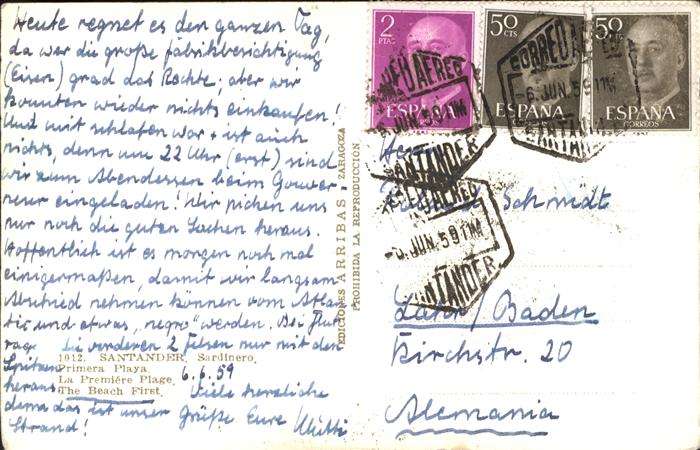 Heute regnet es den ganzen Tag,
da war die große Fabrikbesichtigung
(Eisen) grad das Rechte; aber wir
konnten wieder nichts einkaufen!
Und mit schlafen war + ist auch
nichts, denn um 22 Uhr (erst) sind
wir zum Abendessen beim Gouver-
neur eingeladen! Wir picken uns
nur noch die guten Sachen heraus.
Hoffentlich ist es morgen noch mal
einigermaßen, damit wir langsam
Abschied nehmen können vom Atlan-
tic und etwas "negro" werden. Bei Flut
ragen die vorderen 2 Felsen nur mit den
Spitzen
heraus
denn das ist unser
Strand!
1012. SANTANDER, Sardinero
Primera Playa
La Première Plage
The Beach First
6.6.59
Viele herzliche
Grüße Eure Mutti
EDICIONES ARRIBAS ZARAGOZA
PROHIBIDA LA REPRODUCCIÓN
2
PTAS
ESPAÑA
50
CTS
ESPAÑA
CORREOS
50
ESPAÑA
CORREOS
CORREO AEREO
6 JUN. 59
SANTANDER
CORREO AEREO
-6 JUN. 59
SANTANDER
-6 JUN. 59
SANTANDER
Schmidt
Lahr/Baden
Kirchstr. 20
Alemania